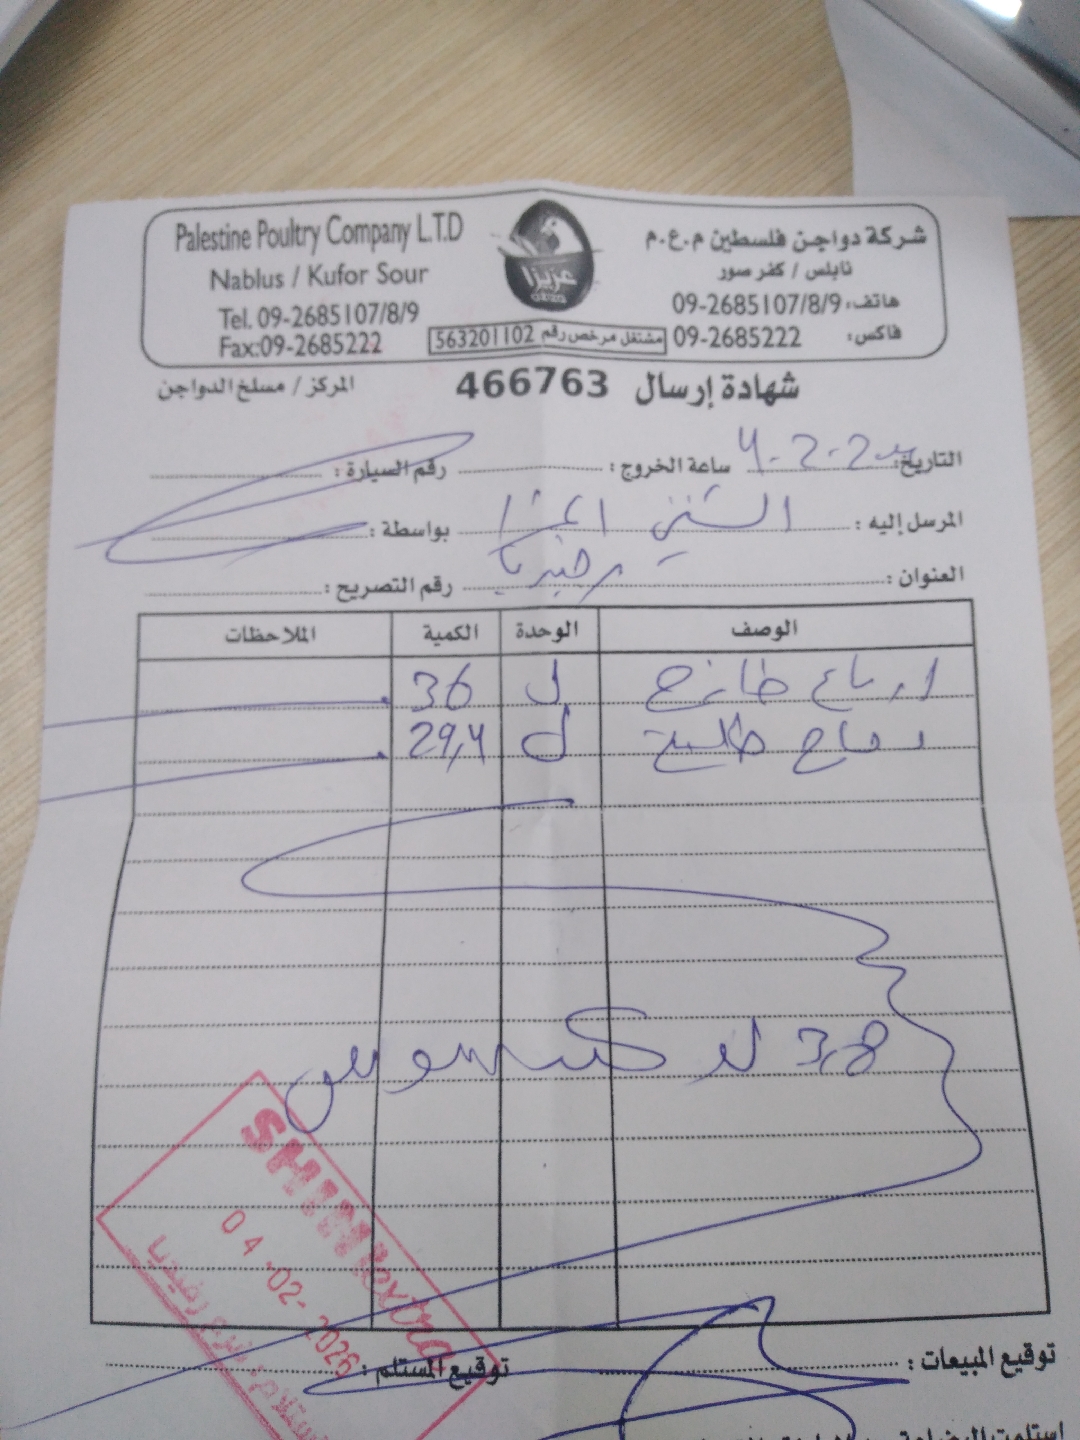 Palestine Poultry Company L.T.D
Nablus / Kufor Sour
Tel. 09-2685107/8/9
Fax:09-2685222
عزيزا
شركة دواجن فلسطين م.ع.م
نابلس / كفر صور
هاتف: 09-2685107/8/9
فاكس: 09-2685222
مشتغل مرخص رقم 563201102
شهادة إرسال 466763
المركز / مسلخ الدواجن
التاريخ: ساعة الخروج: رقم السيارة:
المرسل إليه: الشني بواسطة:
العنوان: رفيديا رقم التصريح:
الوصف الوحدة الكمية الملاحظات
ارباع طازج ك 36
دجاج ك 29,4
3,8
SHINI extra
04-02-2026
فرع رفيديا
توقيع المبيعات: توقيع المستلم: